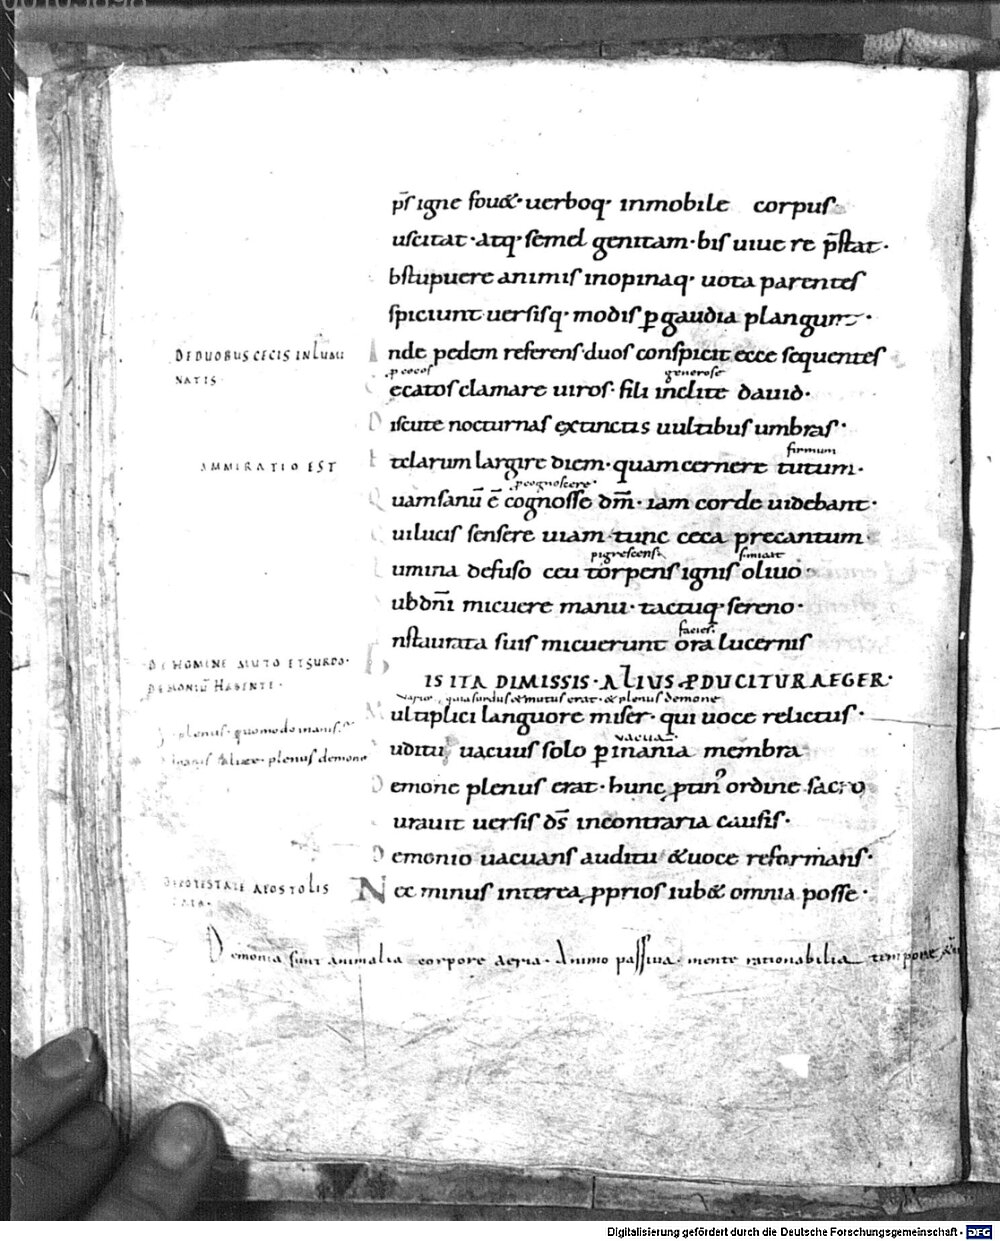 00103898
pr̄s igne fou&· uerboq· inmobile corpus
uscitat· atq· semel genitam· bis uiue re p̄stat·
bstupuere animis inopinaq· uota parentes
spiciunt uersisq· modis ꝑ gaudia plangunt·
DE DUOBUS CECIS INLUMI
NATIS·
Inde pedem referens· duos conspicit ecce sequentes
ꝓ cecos generose
ecatos clamare uiros· fili inclite dauid·
D iscute nocturnas extinctis uultibus umbras·
firmum
AMMIRATIO EST
telarum largire diem· quam cernere tutum·
ꝓ cognoscere·
Q uam sanū ē cognosse dm̄· iam corde uidebant·
ui lucis sensere uiam· tunc ceca precantum·
pigrescens
L umina defuso ceu torpens ignis oliuo·
ub dn̄i micuere manu· tactuq· sereno·
facies·
nstaurata suis micuerunt ora lucernis
DE HOMINE MUTO ET SURDO·
DEMONIŪ HABENTE·
H IS ITA DIMISSIS· ALIUS ꝒDUCITUR AEGER·
uario· quia surdus & mutus erat· & plenus demone
M ultiplici languore miser· qui uoce relictus·
plenus· quomodo inanis·
uacua
uditu uacuus solo ꝑ inania membra
plenus demone
D emone plenus erat· hunc ꝓtin᾽ ordine sacro
urauit uersis ds̄ in contraria causis·
D emonio uacuans auditu &uoce reformans·
DE POTESTATE APOSTOLIS
DATA·
N ec minus interea ꝓprios iub& omnia posse·
Demonia sunt animalia corpore aeria· Animo passiua· mente rationabilia
Digitalisierung gefördert durch die Deutsche Forschungsgemeinschaft - DFG